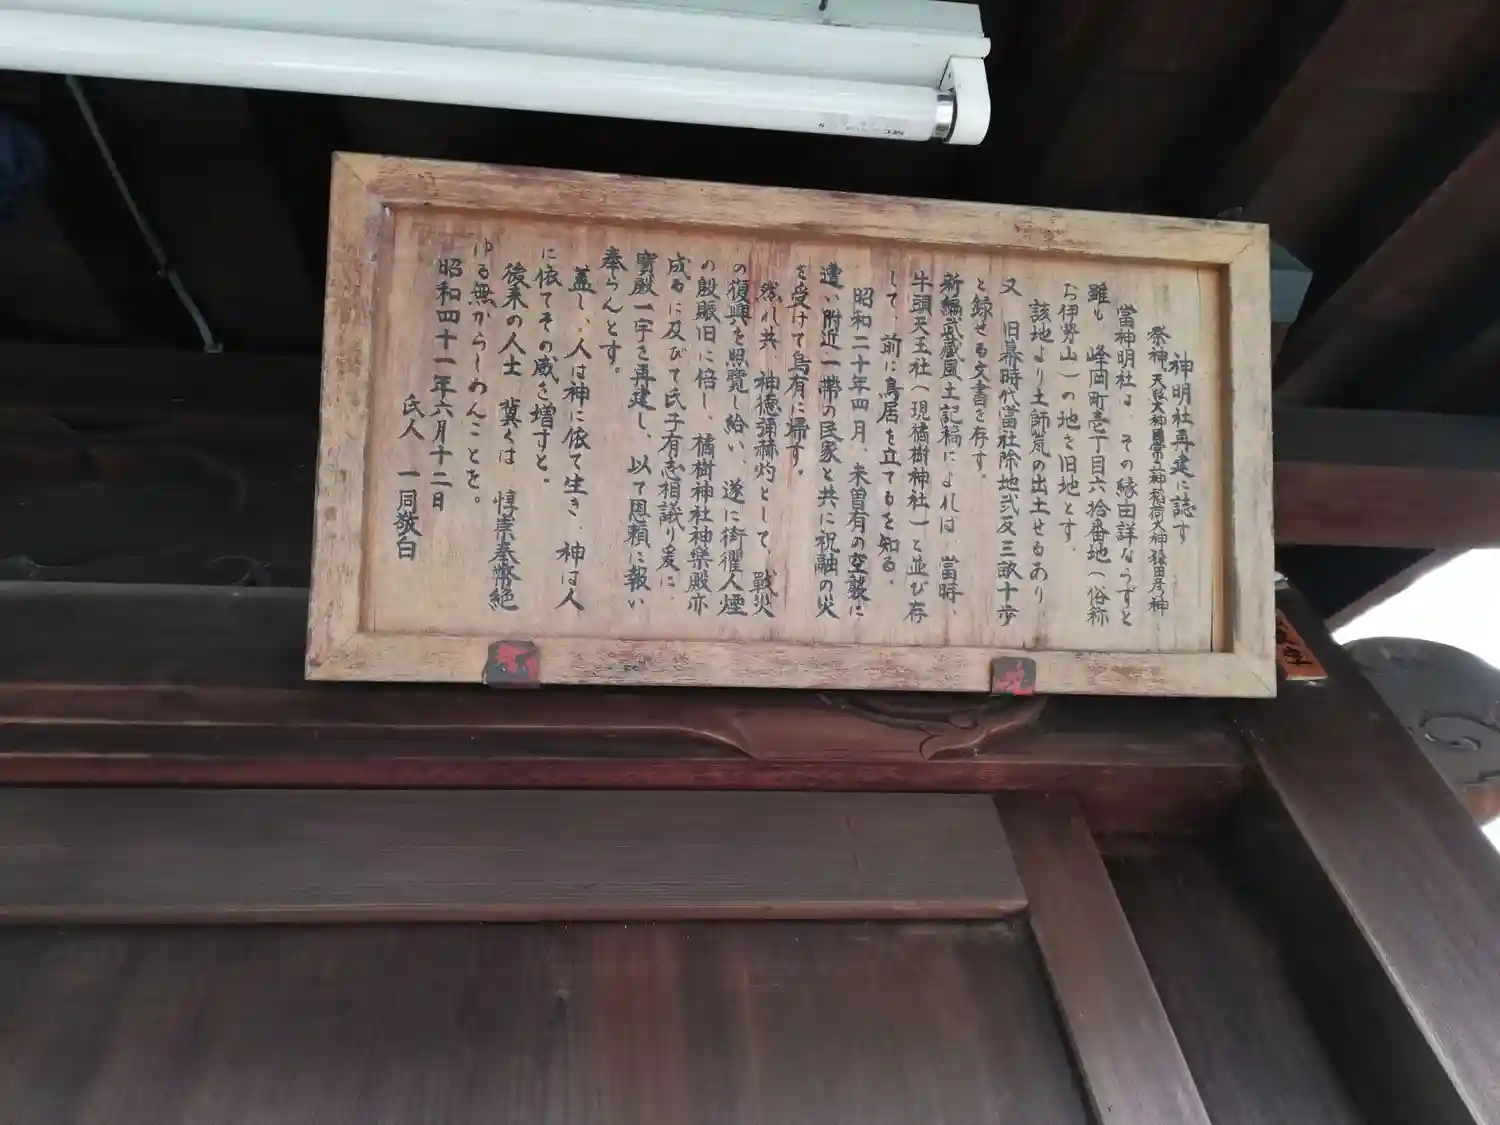 神明社再建に誌す
祭神 天照大神 國常立神 稲荷大神 猿田彦神
當神明社は、その縁由詳ならずと
雖も 峰岡町壱丁目六拾番地(俗称
お伊勢山)の地を旧地とす。
該地より土師荒の出土せるあり、
又 旧幕時代當社除地弐反三畝十歩
と録せる文書を存す。
新編武蔵風土記稿によれば、當時、
牛頭天王社(現橘樹神社)と並び存
して、前に鳥居を立てるを知る。
昭和二十年四月、未曽有の空襲に
遭い附近一帯の民家と共に祝融の災
を受けて烏有に帰す。
然れ共、神徳彌赫灼として、戰災
の復興を照覽し給い、遂に街衢人煙
の殷賑旧に倍し、橘樹神社神樂殿亦
成るに及びて氏子有志相議り爰に
寶殿一宇を再建し、以て恩頼に報い
奉らんとす。
蓋し、人は神に依て生き、神は人
に依てその威を増すと。
後来の人士 冀くは 惇崇奉幣絶
ゆる無からしめんことを。
昭和四十一年六月十二日
氏人 一同敬白
NEC